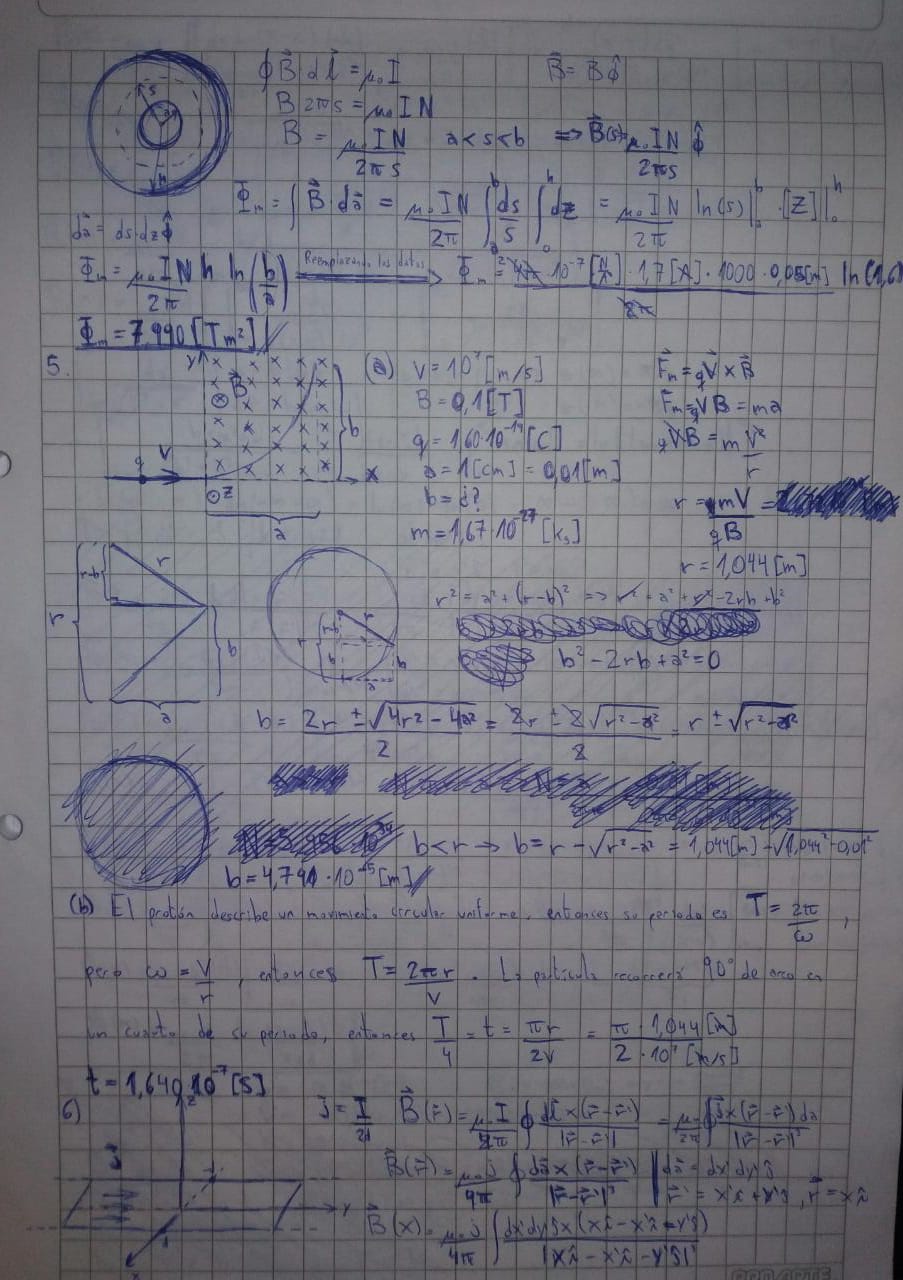 ∮B⃗·dl⃗ = μ₀I B⃗ = Bφ̂
B 2πs = μ₀IN
B = μ₀IN/2πs a<s<b ⇒ B⃗(s) = μ₀IN/2πs φ̂
Φₘ = ∫B⃗·da⃗ = μ₀IN/2π ∫ₐᵇ ds/s ∫₀ʰ dz = μ₀IN/2π ln(s)|ₐᵇ · [z]|₀ʰ
da⃗ = ds·dz φ̂
Φₘ = μ₀IN/2π h ln(b/a) Reemplazando los datos Φₘ = 4π·10⁻⁷[N/A²]·1,7[A]·1000·0,05[m]/2π ln(1,6)
Φₘ = 7,990[Tm²]
5. y B⃗ b
(a) v = 10⁷[m/s] F⃗ₘ = qV⃗×B⃗
B = 0,1[T] F⃗ₘ = qVB = ma
q = 1,60·10⁻¹⁹[C] qVB = m V²/r
q V x
a = 1[cm] = 0,01[m]
⊙z a
b = ¿?
m = 1,67·10⁻²⁷[kg] r = mV/qB =
r = 1,044[m]
r-b r r b a
r-b r r b b a
r² = a² + (r-b)² ⇒ r² = a² + r² - 2rb + b²
b² - 2rb + a² = 0
b = 2r ± √(4r² - 4a²)/2 = 2r ± 2√(r² - a²)/2 = r ± √(r² - a²)
b<r → b = r - √(r² - a²) = 1,044[m] - √(1,044² - 0,01²)
b = 4,791·10⁻⁵[m]
(b) El protón describe un movimiento circular uniforme, entonces su periodo es T = 2π/ω,
pero ω = V/r, entonces T = 2πr/V. La partícula recorrerá 90° de arco en
un cuarto de su periodo, entonces T/4 = t = πr/2v = π·1,044[m]/2·10⁷[m/s]
t = 1,640·10⁻⁷[s]
6) z J⃗ y x
J = I/2d B⃗(r⃗) = μ₀I/4π ∮ dl⃗×(r⃗-r⃗')/|r⃗-r⃗'|³ = μ₀/2π ∮ J⃗×(r⃗-r⃗')da/|r⃗-r⃗'|³
B⃗(r⃗) = μ₀J/4π ∮ da⃗×(r⃗-r⃗')/|r⃗-r⃗'|³ da⃗ = dx'dy'ŷ
r⃗' = x'x̂ + y'ŷ, r⃗ = xx̂
B⃗(x) = μ₀J/4π ∫ dx'dy'ŷ×(xx̂ - x'x̂ - y'ŷ)/|xx̂ - x'x̂ - y'ŷ|³